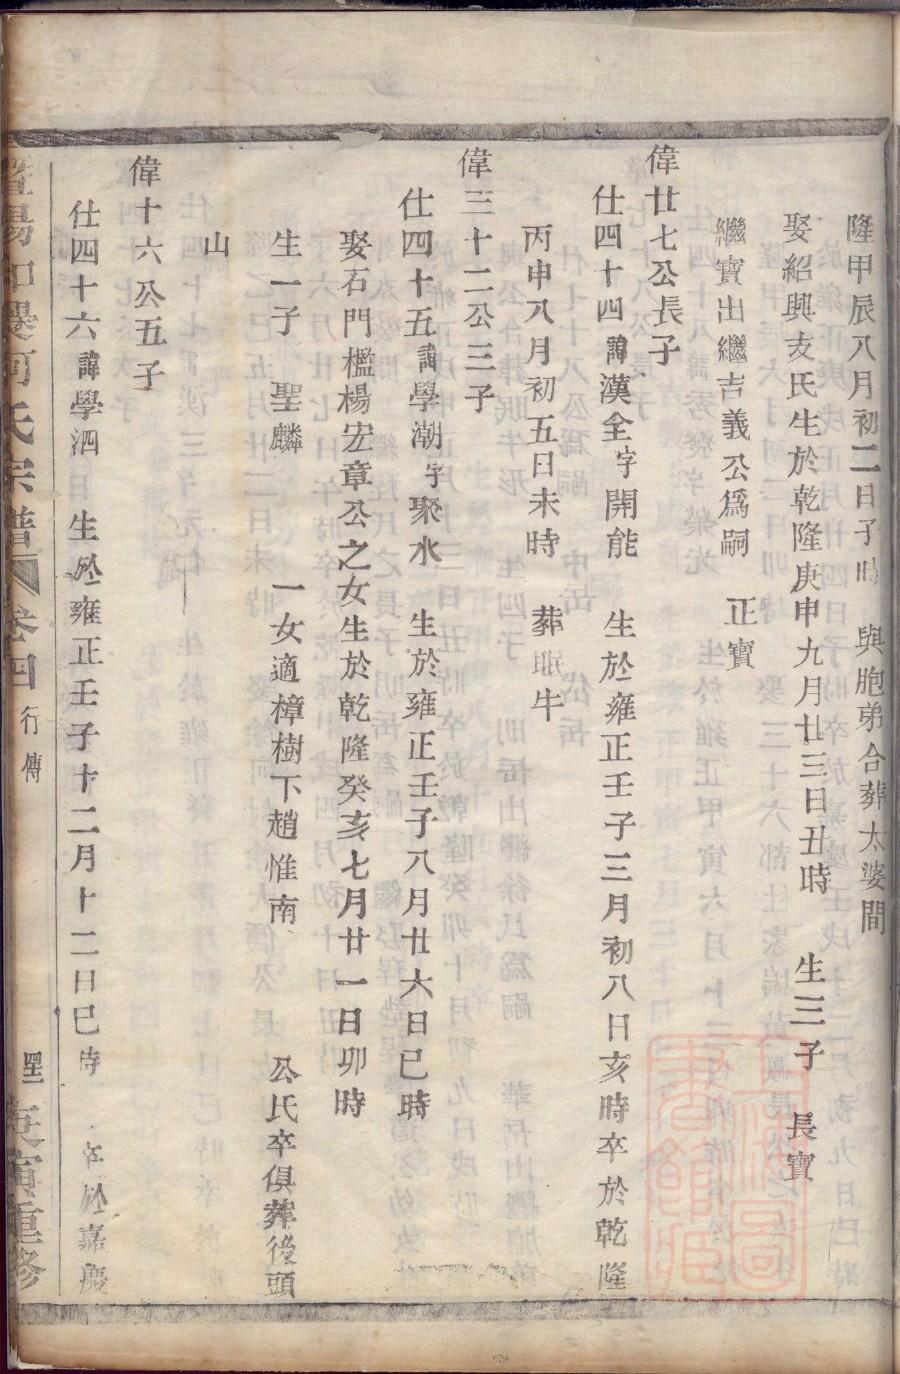 隆甲辰八月初二日子時 與胞弟合葬太婆間
娶紹興支氏生於乾隆庚申九月廿三日丑時 生三子 長寶
繼寶出繼吉義公爲嗣 正寶
偉廿七公長子
仕四十四諱漢全字開能 生於雍正壬子三月初八日亥時卒於乾隆
丙申八月初五日未時 葬眠牛
偉三十二公三子
仕四十五諱學潮字聚水 生於雍正壬子八月廿六日巳時
娶石門檻楊宏章公之女生於乾隆癸亥七月廿一日卯時
生一子 聖麟 一女適樟樹下趙惟南 公氏卒俱葬後頭
山
偉十六公五子
仕四十六諱學泗 生於雍正壬子十二月十二日巳時 卒於嘉慶
暨陽 河氏宗譜 卷四 行傳 寅重修